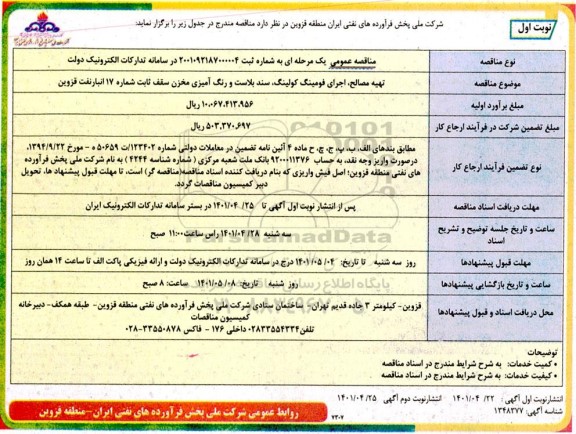 نوبت اول
شرکت ملی پخش فرآورده های نفتی ایران منطقه قزوین در نظر دارد مناقصه مندرج در جدول زیر را برگزار نماید:
نوع مناقصه
مناقصه عمومی یک مرحله ای به شماره ثبت ۲۰۰۱۰۹۳۱۸۷۰۰۰۰۰۴ در سامانه تدارکات الکترونیک دولت
موضوع مناقصه
تهیه مصالح، اجرای فومینگ کولینگ، سند بلاست و رنگ آمیزی مخزن سقف ثابت شماره ۱۷ انبارنفت قزوین
مبلغ برآورد اولیه
۱۰،۰۶۷،۴۱۳،۹۵۶ ریال
مبلغ تضمین شرکت در فرآیند ارجاع کار
۵۰۳،۳۷۰،۶۹۷ ریال
نوع تضمین فرآیند ارجاع کار
مطابق بندهای الف، ب، پ، ج، چ، ح ماده ۴ آئین نامه تضمین در معاملات دولتی شماره ۱۲۳۴۰۲/ت ۵۰۶۵۹ ه - مورخ ۱۳۹۴/۹/۲۲،
درصورت واریز وجه نقد، به حساب ۹۲۰۰۰۱۱۳۷۶ بانک ملت شعبه مرکزی ( شماره شناسه ۴۲۴۴ ) به نام شرکت ملی پخش فرآورده
های نفتی منطقه قزوین؛ اصل فیش واریزی که بنام دریافت کننده اسناد مناقصه(مناقصه گر) است، تا مهلت قبول پیشنهاد ها، تحویل
دبیر کمیسیون مناقصات گردد.
مهلت دریافت اسناد مناقصه
پس از انتشار نوبت اول آگهی تا ۲۵/ ۱۴۰۱/۰۴ در بستر سامانه تدارکات الکترونیک ایران
ساعت و تاریخ جلسه توضیح و تشریح
اسناد
سه شنبه ۲۸/ ۱۴۰۱/۰۴ راس ساعت ۱۱:۰۰ صبح
مهلت قبول پیشنهادها
روز سه شنبه تا تاریخ: ۰۴/ ۱۴۰۱/۰۵ درج در سامانه تدارکات الکترونیک دولت و ارائه فیزیکی پاکت الف تا ساعت ۱۴ همان روز
ساعت و تاریخ بازگشایی پیشنهادها
روز شنبه تاریخ: ۰۸/ ۱۴۰۱/۰۵ ساعت: ۸ صبح
محل دریافت اسناد و قبول پیشنهادها
قزوین- کیلومتر ۳ جاده قدیم تهران- ساختمان ستادی شرکت ملی پخش فرآورده های نفتی منطقه قزوین- طبقه همکف- دبیرخانه
کمیسیون مناقصات
تلفن۰۲۸۳۳۵۵۴۳۳۴ داخلی ۱۷۶ - فاکس ۳۳۵۵۰۸۷۸-۰۲۸
توضیحات
• کمیت خدمات: به شرح شرایط مندرج در اسناد مناقصه
• کیفیت خدمات: به شرح شرایط مندرج در اسناد مناقصه
انتشارنوبت اول آگهی : ۲۲/ ۱۴۰۱/۰۴ انتشارنوبت دوم آگهی ۲۵/ ۱۴۰۱/۰۴
شناسه آگهی: ۱۳۴۸۳۷۷
۷۳۰۷
روابط عمومی شرکت ملی پخش فرآورده های نفتی ایران-منطقه قزوین